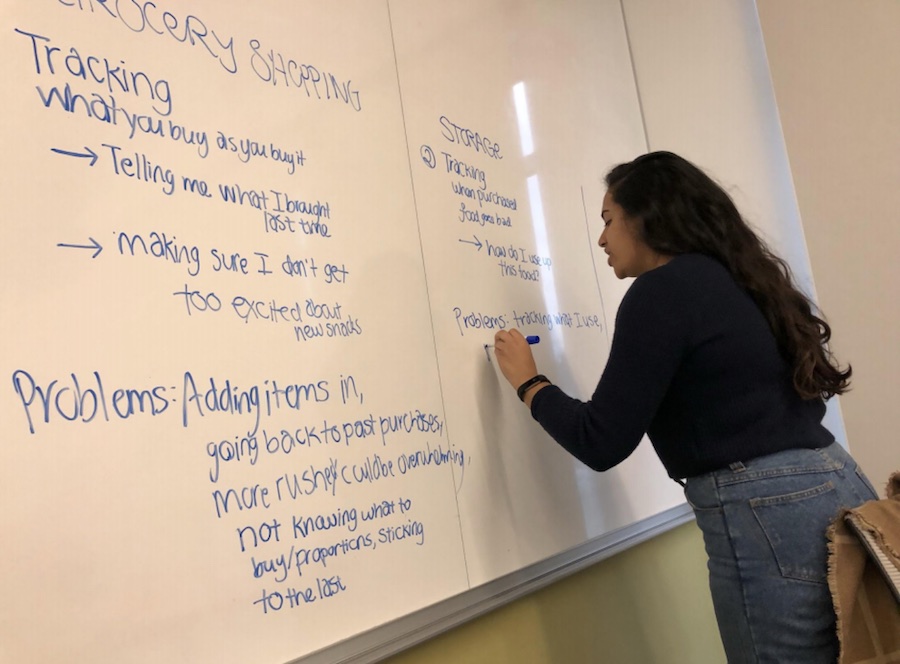 GROCERY SHOPPING
Tracking
what you buy as you buy it
→ Telling me what I brought
last time
→ making sure I don't get
too excited about
new snacks
Problems: Adding items in,
going back to past purchases,
more rushed/could be overwhelming,
not knowing what to
buy/proportions, sticking
to the last
STORAGE
Tracking
when purchased
food goes bad
→ how do I use up
this food?
Problems: tracking what I use,